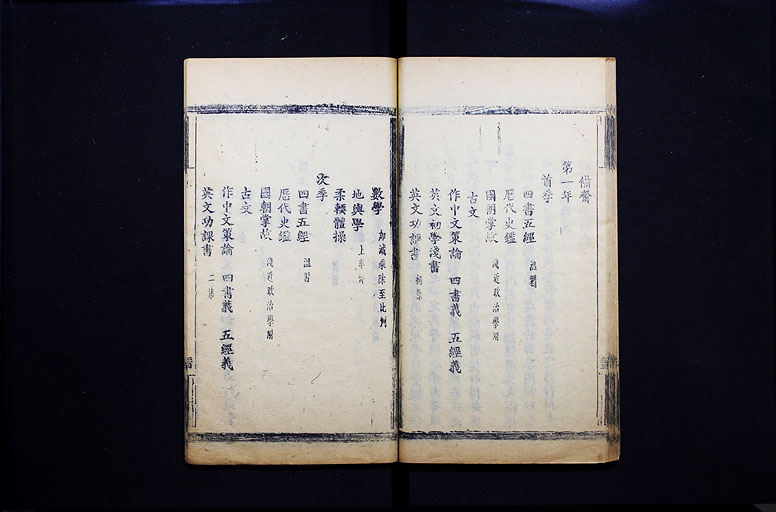 備齋
第一年
首季
四書五經 溫習
歷代史鑑
國朝掌故 淺近政治學附
古文
作中文策論 四書義 五經義
英文初學淺書
英文功課書 初集
數學 加減乘除至比例
地輿學 上半球
柔輭體操
次季
四書五經 溫習
歷代史鑑
國朝掌故 淺近政治學附
古文
作中文策論 四書義 五經義
英文功課書 二集